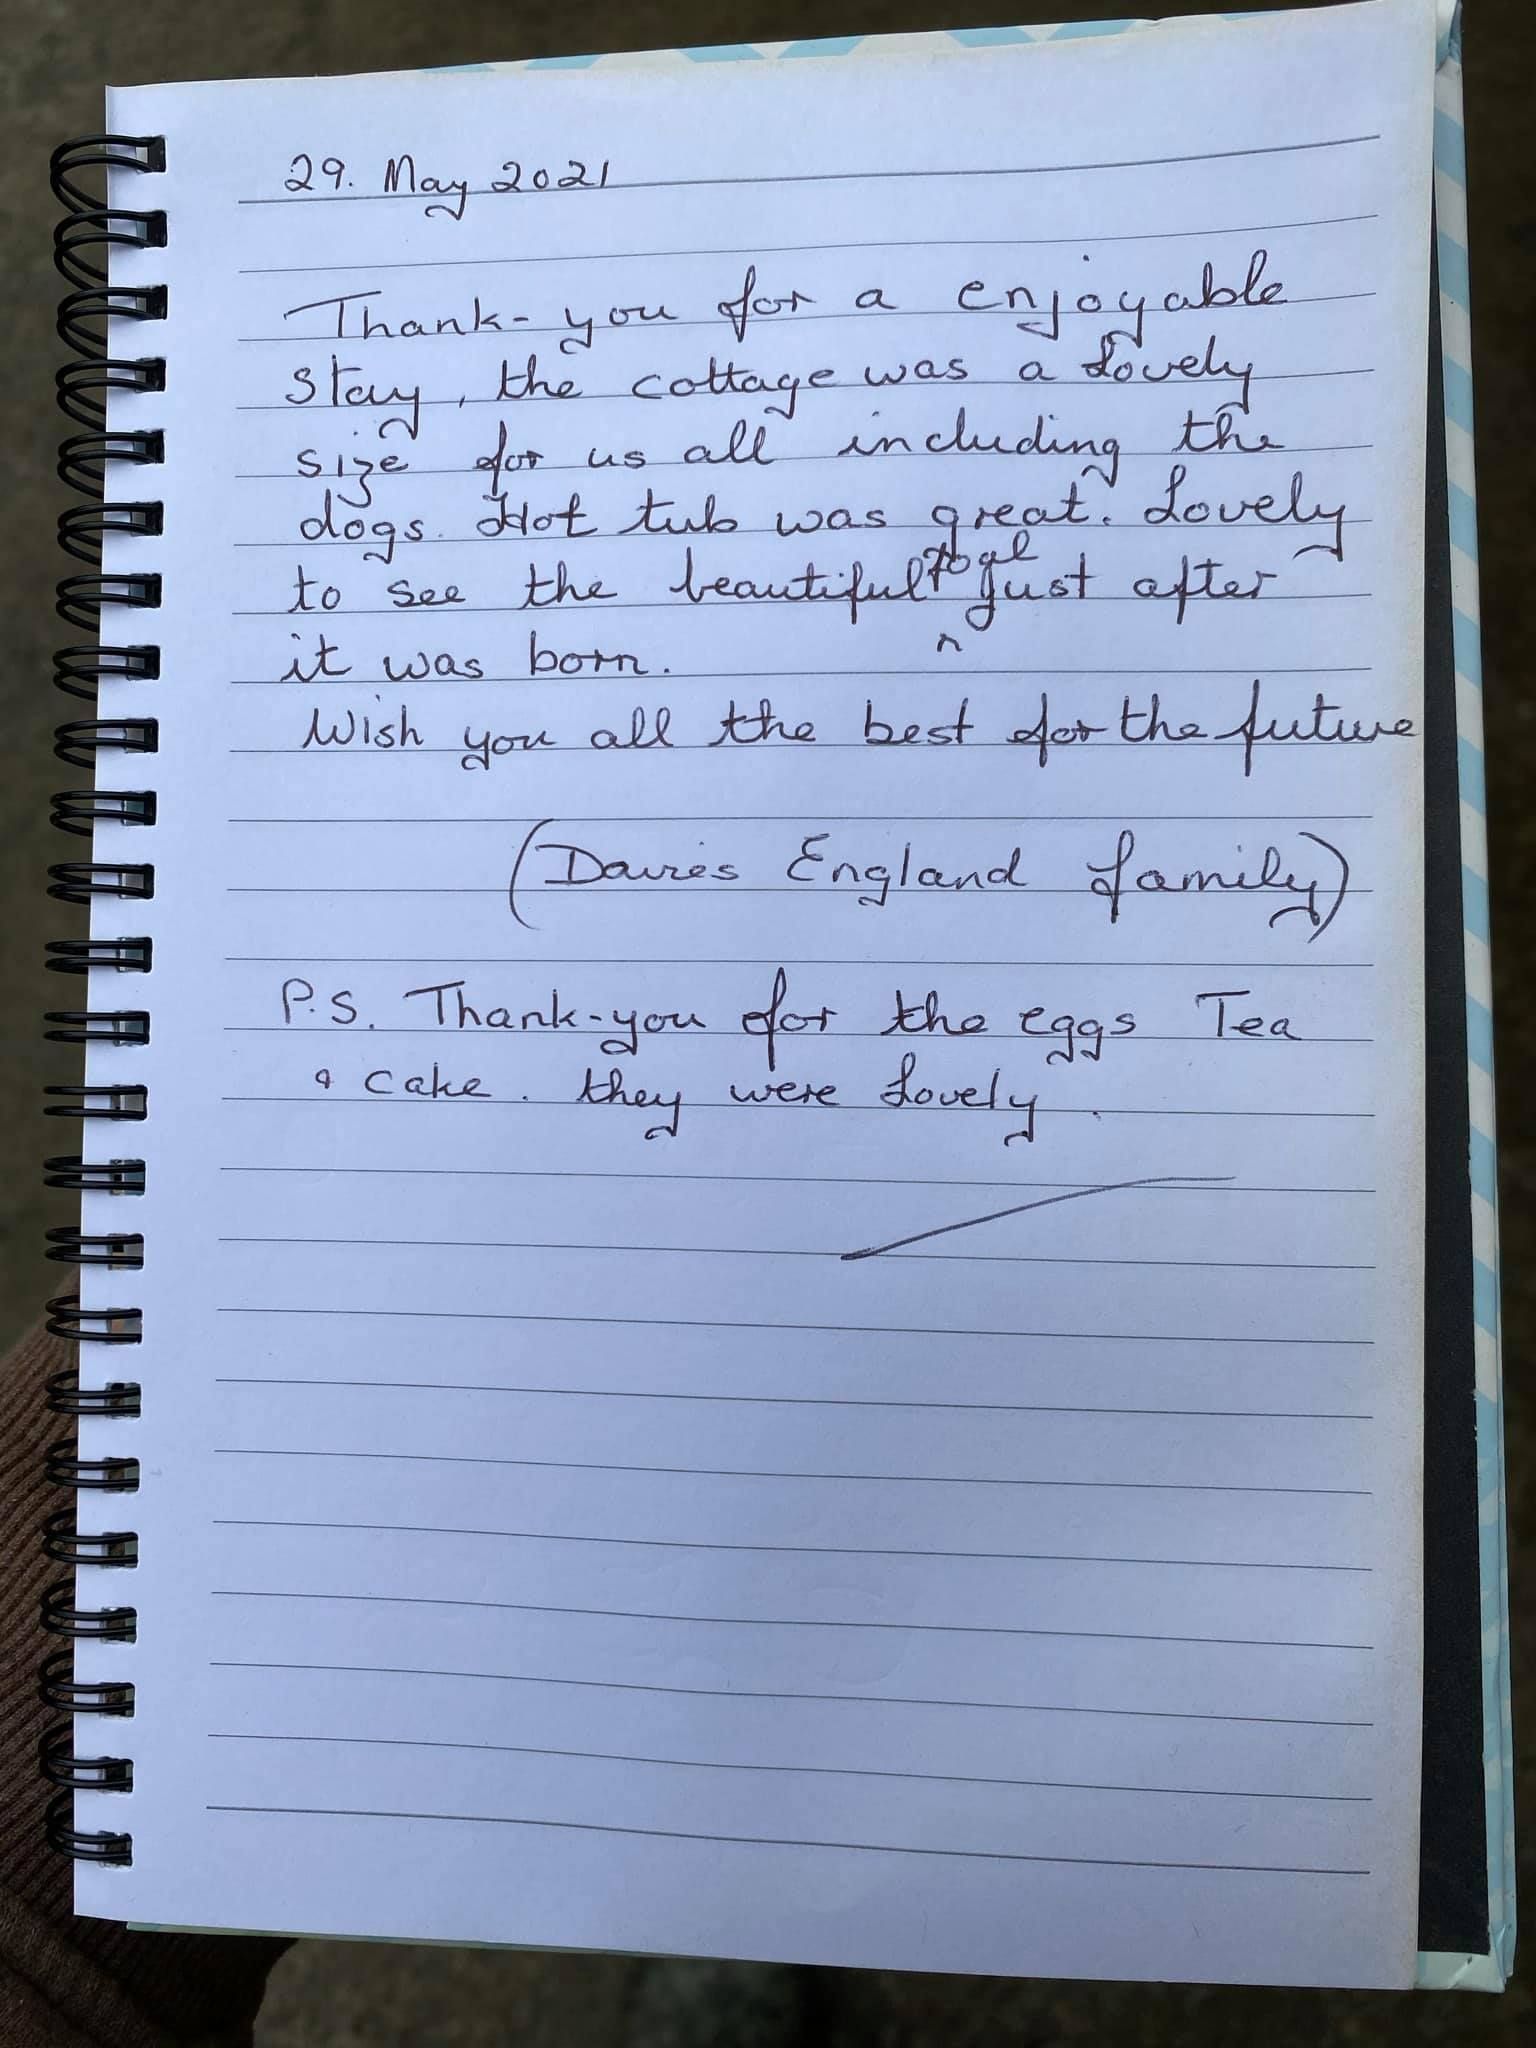 29. May 2021
Thank-you for a enjoyable
stay, the cottage was a lovely
size for us all including the
dogs. Hot tub was great. Lovely
to see the beautiful foal just after
it was born.
Wish you all the best for the future
(Davies England family)
P.S. Thank-you for the eggs Tea
& cake. they were lovely.